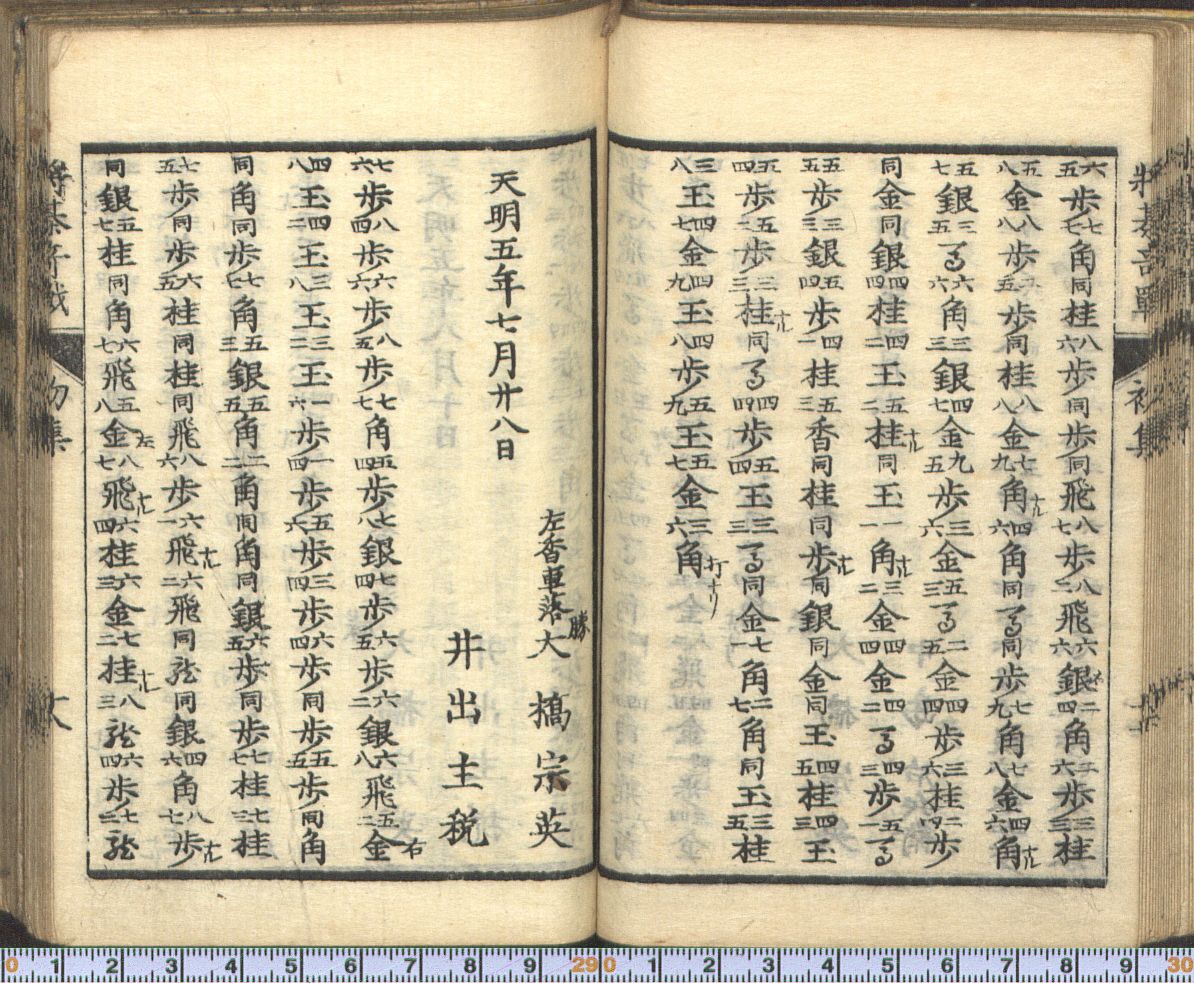 六五歩七七角同桂八六歩同歩同飛八七歩八二飛六六銀二四角二六歩三三桂
五八金八八歩二五歩同桂八八金七九角ナル四六角同馬同歩七九角七八金四六角ナル
五七銀三五馬六六角三三銀四七金九五歩三六金五三馬二五金四四歩三六桂二四歩
同金同銀四四桂四二玉五二桂ナル同玉一一角ナル三二金四四金四二馬四三歩五一馬
五五歩三三銀五四歩四一桂五三香同桂同歩ナル同銀同金同玉四五桂四三玉
五四歩五二歩三三桂ナル同馬四四歩五四玉三三馬同金七一角二七角同玉三五桂
三八玉四七金四九玉四八歩五九玉五七金三六角打ナリ
天明五年七月廿八日
左香車落 勝 大橋宗英
井出主税
七六歩八四歩六六歩八五歩七七角五四歩七八銀七四歩六五歩六二銀六八飛五二金右
四八玉四二玉三八玉三二玉一六歩一四歩五六歩三四歩六四歩同歩五五歩同角
同角同歩七七角五三銀五五角二二角同角同銀六五歩同歩七七桂七三桂
七五歩同歩六五桂同桂同飛八六歩六一飛ナル六二飛同龍同銀四六角八七歩ナル
同銀五七桂同角六七飛五八金左八七飛ナル六四桂六三金七二桂ナル八三龍六四歩七二龍